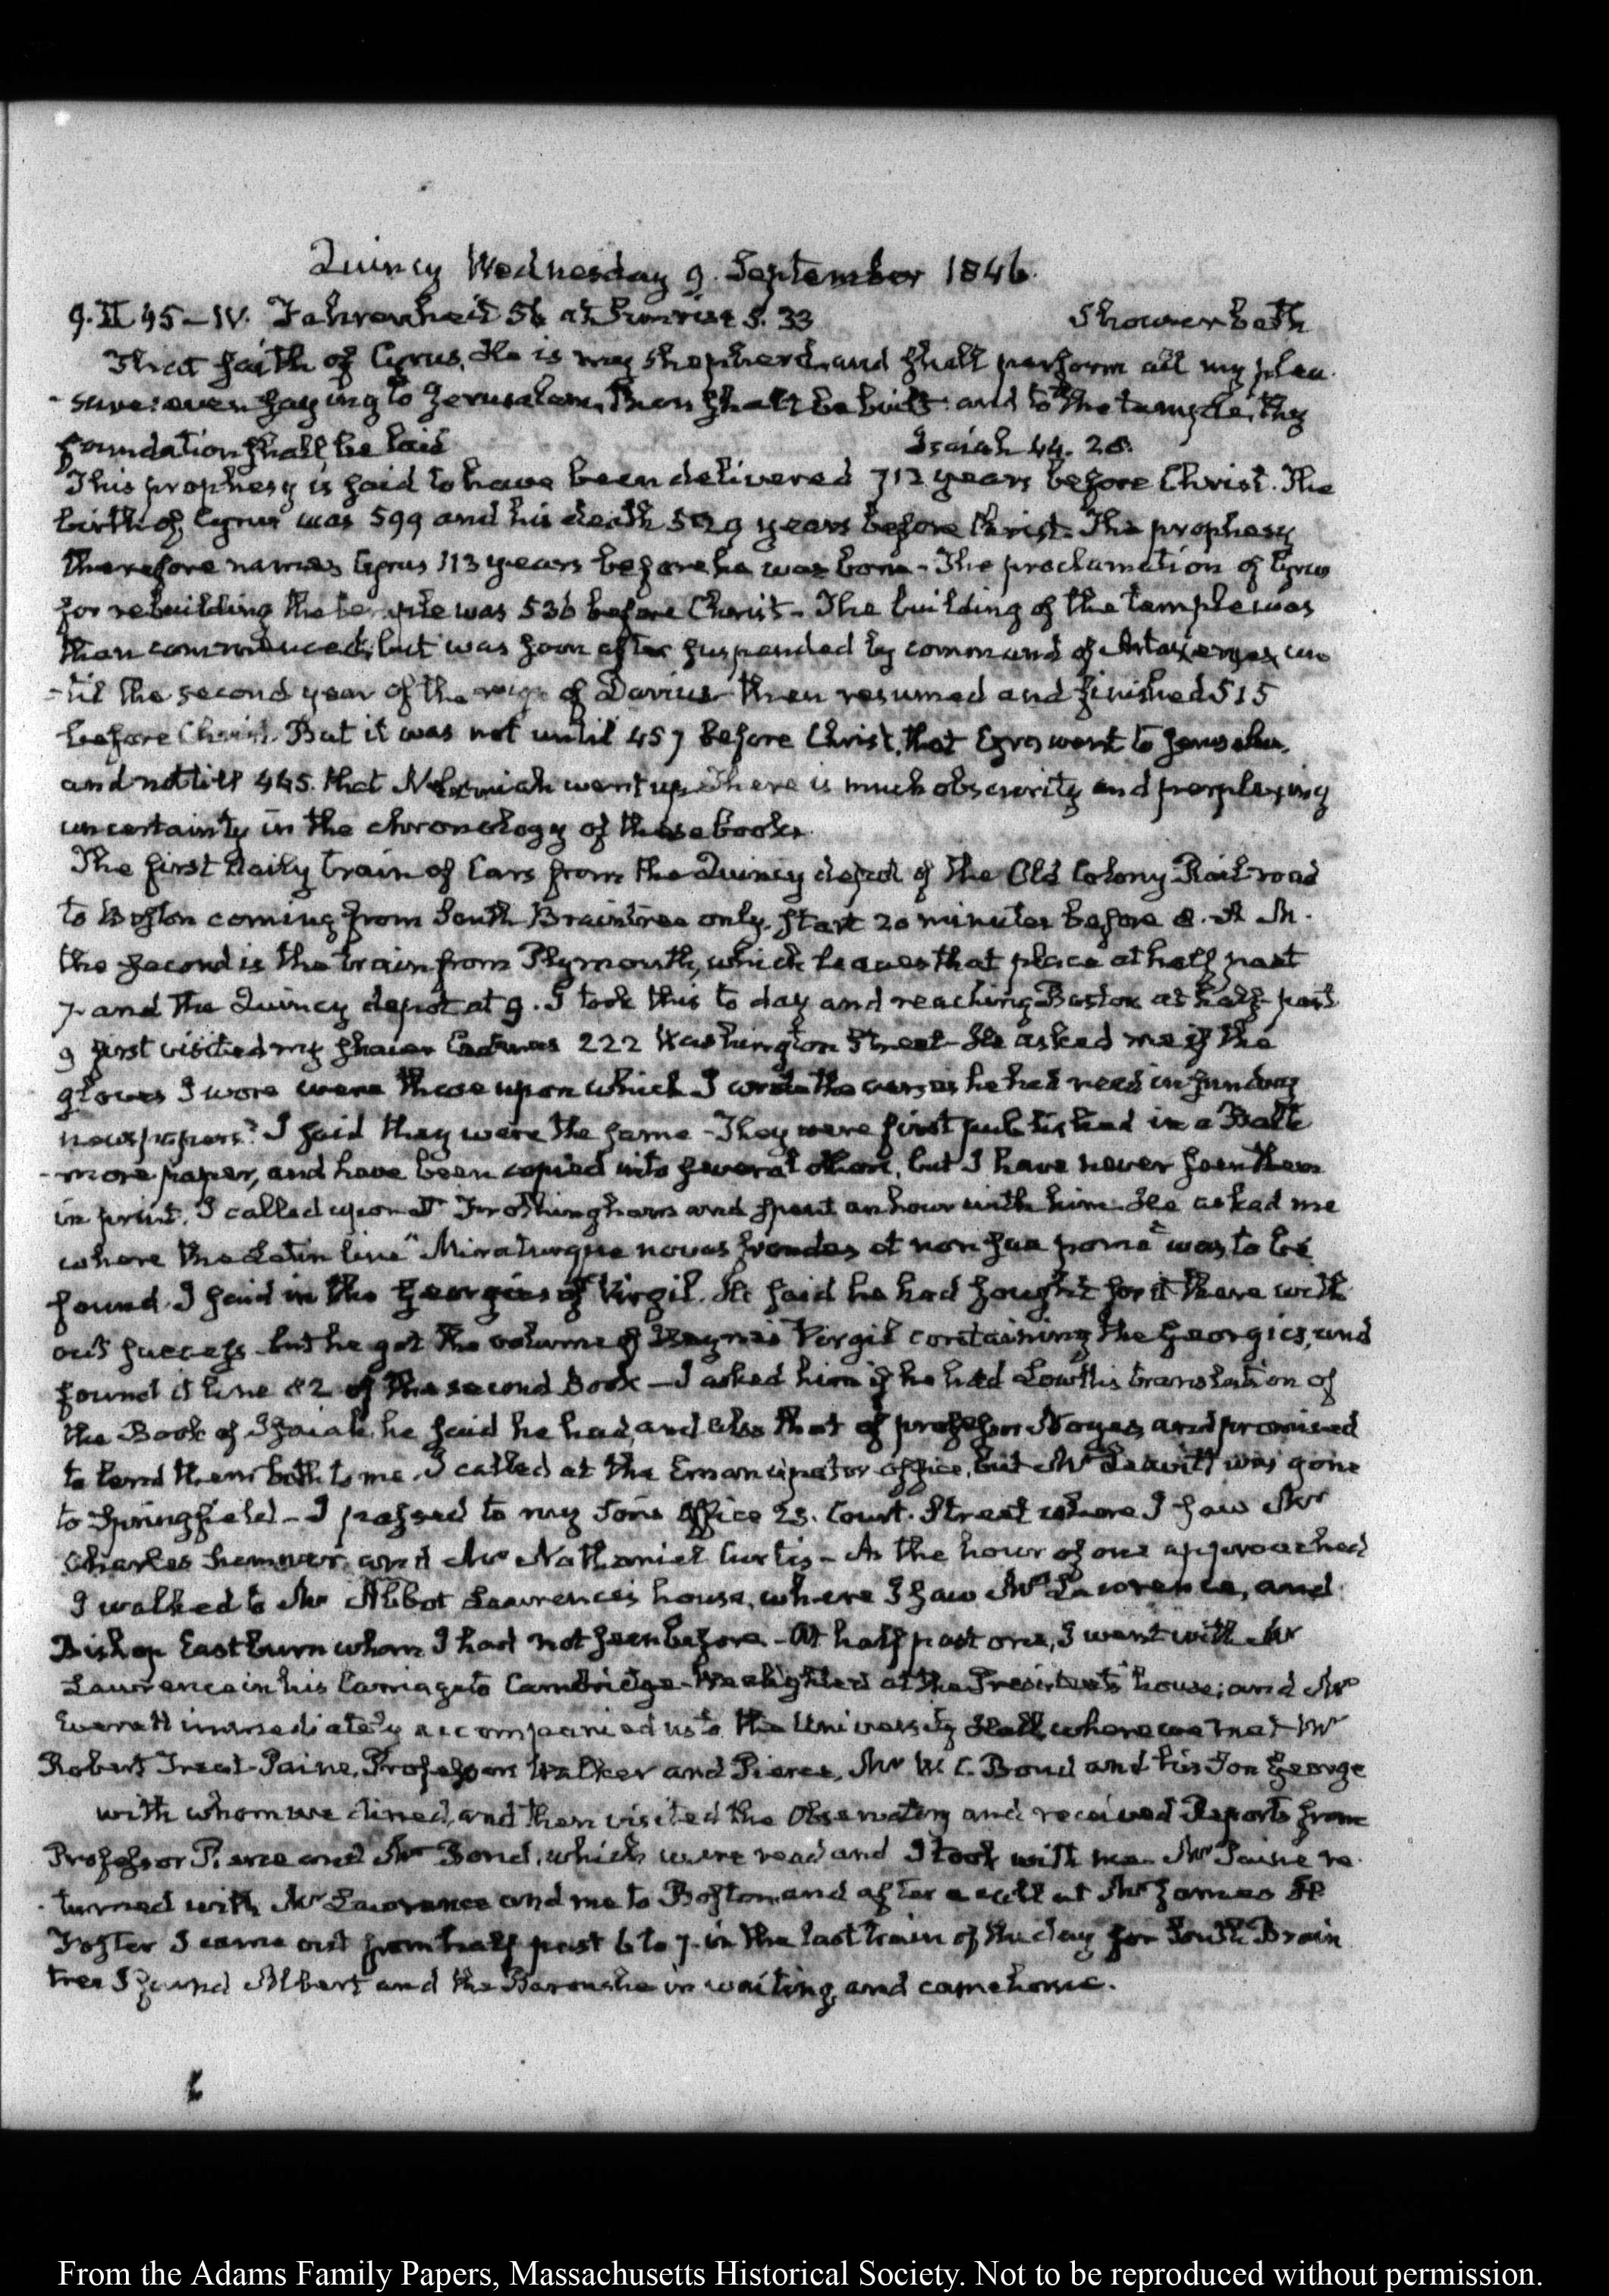 Quincy Wednesday 9. September 1846.
9. II 45 – IV. Fahrenheit 56 at Sunrise 5. 33 Shower bath
That saith of Cyrus, He is my shepherd, and shall perform all my plea
-sure: even saying to Jerusalem, Thou shalt be built: and to the temple, thy
foundation shall be laid Isaiah 44. 28.
This prophesy is said to have been delivered 712 years before Christ. The
birth of Cyrus was 599 and his death 529 years before Christ. The prophesy
therefore names Cyrus 113 years before he was born – The proclamation of Cyrus
for rebuilding the temple was 536 before Christ – The building of the temple was
then commenced, but was soon after suspended by command of Artaxerxes un
-til the second year of the reign of Darius then resumed and finished 515
before Christ. But it was not until 457 before Christ, that Ezra went to Jerusalem,
and not till 445. that Nehemiah went up. There is much obscurity and perplexing
uncertainty in the chronology of these books.
The first daily train of Cars from the Quincy depot of the Old Colony Rail-road
to Boston coming from South Braintree only, start 20 minutes before 8. A M.
the second is the train from Plymouth, which leaves that place at half past
7. and the Quincy depot at 9. I took this to day and reaching Boston at half-past
9 first visited my 222 Washington Street – He asked me if the
gloves I wore were those upon which I wrote the verses he had read in sundry
newspapers? I said they were the same – They were first published in a Balti
-more paper, and have been copied into several others, but I have never seen them
in print. I called upon Frothingham and spent an hour with him. He asked me
where the Latin line "Miraturque novas frondes et non sua poma" was to be
found. I said in the Georgics of Virgil. He said he had sought for it there with
out success but he got the volume of Heyne's Virgil containing the Georgics, and
found it line 82 of the second Book – I asked him if he had Lowth's translation of
the Book of Isaiah, he said he had, and also that of professor Noyes, and promised
to lend them both to me. I called at the Emancipator office, but Mr Leavitt was gone
to Springfield – I passed to my Son's Office 23. Court. Street where I saw Mr
Charles Sumner, and Mr Nathaniel Curtis – As the hour of one approached
I walked to Mr Abbot Lawrence's house, where I saw Mr Lawrence, and
Bishop Eastburn whom I had not seen before – At half past one, I went with Mr
Lawrence in his Carriage to Cambridge – We alighted at the President's house; and Mr
Everett immediately accompanied us to the University Hall where we met Mr
Robert Treat Paine, Professors Walker and Pierce, Mr W. C. Bond and his Son George
with whom we dined, and then visited the Observatory and received Reports from
Professor Pierce and Mr Bond, which were read and I took with me. Mr Paine re
-turned with Mr Lawrence and me to Boston, and after a call at Mr James H
Foster I came out from half past 6 to 7. in the last train of the day for South Brain
tree I found Albert and the Barouche in waiting and came home.
From the Adams Family Papers, Massachusetts Historical Society. Not to be reproduced without permission.